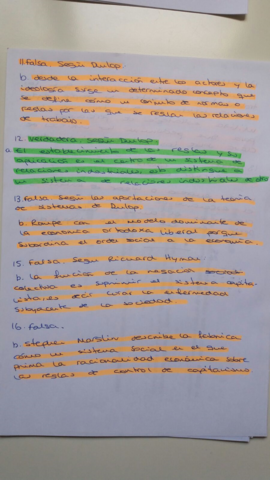 11. Falsa. Según Dunlop
b. desde la interacción entre los actores y la
ideología surge un determinado concepto que
se define como un conjunto de normas o
reglas por las que se reglan las relaciones
de trabajo.
12. Verdadera según Dunlop
a. El establecimiento de las reglas y su
aplicación es el centro de un sistema de
relaciones industriales
un sistema de relaciones industriales de
13. Falsa Según las aportaciones de la teoría
de sistemas de Dunlop.
b. Rompe con el modelo dominante de
la economía ortodoxa liberal porque
subordina el orden social a la economía.
15. Falsa. Según Richard Hyman
b. La función de la negociación
colectiva es suprimir el sistema capita-
lista, es decir curar la enfermedad
subyacente de la sociedad
16. Falsa.
b. Stephen Marglin describe la fábrica
como un sistema social en el que
prima la racionalidad económica sobre
las reglas de control de capitalismo